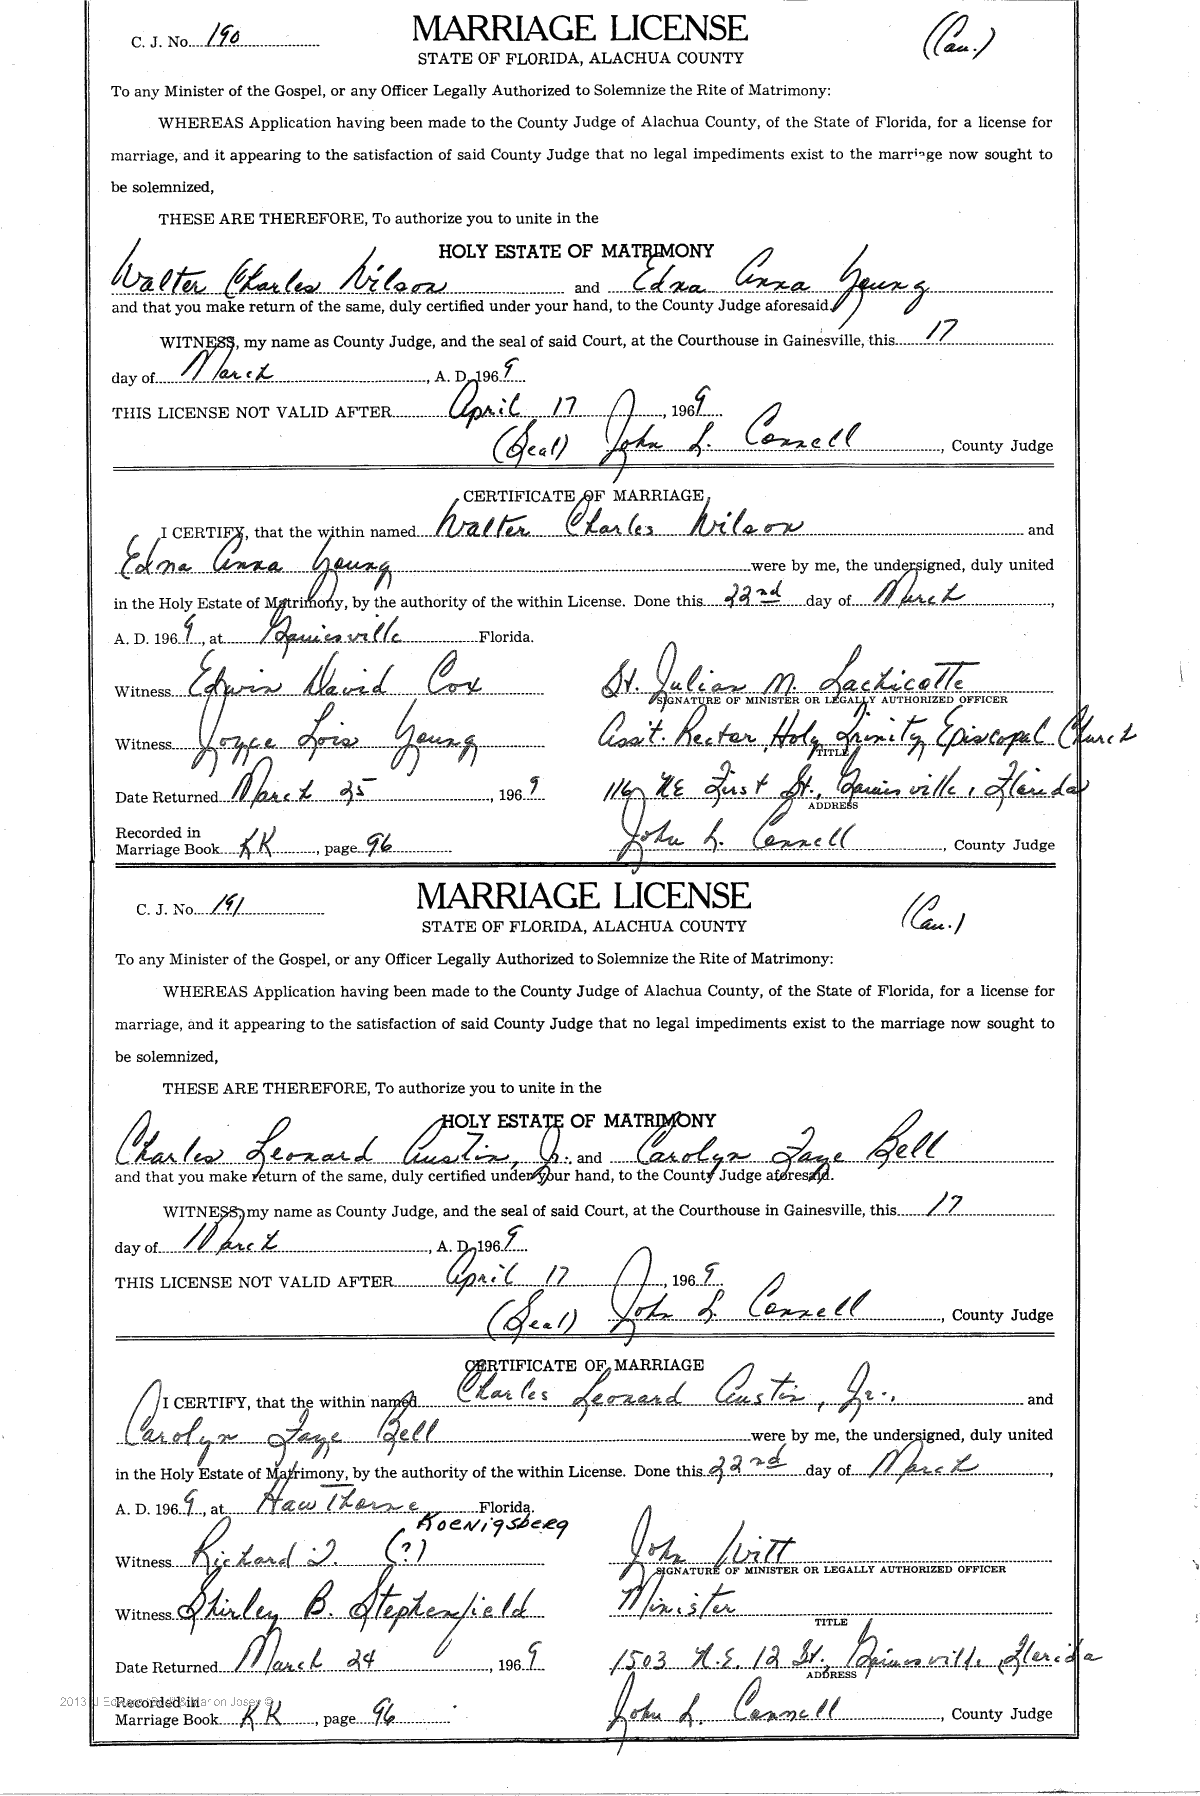 C. J. No. 190
MARRIAGE LICENSE
(Cau.)
STATE OF FLORIDA, ALACHUA COUNTY
To any Minister of the Gospel, or any Officer Legally Authorized to Solemnize the Rite of Matrimony:
WHEREAS Application having been made to the County Judge of Alachua County, of the State of Florida, for a license for
marriage, and it appearing to the satisfaction of said County Judge that no legal impediments exist to the marriage now sought to
be solemnized,
THESE ARE THEREFORE, To authorize you to unite in the
HOLY ESTATE OF MATRIMONY
Walter Charles Wilson and Edna Anna Young
and that you make return of the same, duly certified under your hand, to the County Judge aforesaid.
WITNESS, my name as County Judge, and the seal of said Court, at the Courthouse in Gainesville, this 17
day of March, A. D. 1969
THIS LICENSE NOT VALID AFTER April 17, 1969
(Seal) John L. Connell, County Judge
CERTIFICATE OF MARRIAGE
I CERTIFY, that the within named Walter Charles Wilson and
Edna Anna Young were by me, the undersigned, duly united
in the Holy Estate of Matrimony, by the authority of the within License. Done this 22nd day of March,
A. D. 1969, at Gainesville Florida.
Witness Edwin David Cox St. Julian M. Lachicotte
SIGNATURE OF MINISTER OR LEGALLY AUTHORIZED OFFICER
Witness Joyce Lois Young Ass't. Rector, Holy Trinity Episcopal Church
TITLE
Date Returned March 25, 1969 116 NE First St., Gainesville, Florida
ADDRESS
Recorded in
Marriage Book KK, page 96 John L. Connell, County Judge
C. J. No. 191
MARRIAGE LICENSE
(Cau.)
STATE OF FLORIDA, ALACHUA COUNTY
To any Minister of the Gospel, or any Officer Legally Authorized to Solemnize the Rite of Matrimony:
WHEREAS Application having been made to the County Judge of Alachua County, of the State of Florida, for a license for
marriage, and it appearing to the satisfaction of said County Judge that no legal impediments exist to the marriage now sought to
be solemnized,
THESE ARE THEREFORE, To authorize you to unite in the
HOLY ESTATE OF MATRIMONY
Charles Leonard Austin, Jr. and Carolyn Faye Bell
and that you make return of the same, duly certified under your hand, to the County Judge aforesaid.
WITNESS, my name as County Judge, and the seal of said Court, at the Courthouse in Gainesville, this 17
day of March, A. D. 1969
THIS LICENSE NOT VALID AFTER April 17, 1969
(Seal) John L. Connell, County Judge
CERTIFICATE OF MARRIAGE
I CERTIFY, that the within named Charles Leonard Austin, Jr., and
Carolyn Faye Bell were by me, the undersigned, duly united
in the Holy Estate of Matrimony, by the authority of the within License. Done this 22nd day of March,
A. D. 1969, at Hawthorne Florida.
Koenigsberg
Witness Richard J. (?) John Witt
SIGNATURE OF MINISTER OR LEGALLY AUTHORIZED OFFICER
Witness Shirley B. Stephenfield Minister
TITLE
Date Returned March 24, 1969 1503 N.E. 12 St., Gainesville, Florida
ADDRESS
Recorded in
Marriage Book KK, page 96 John L. Connell, County Judge